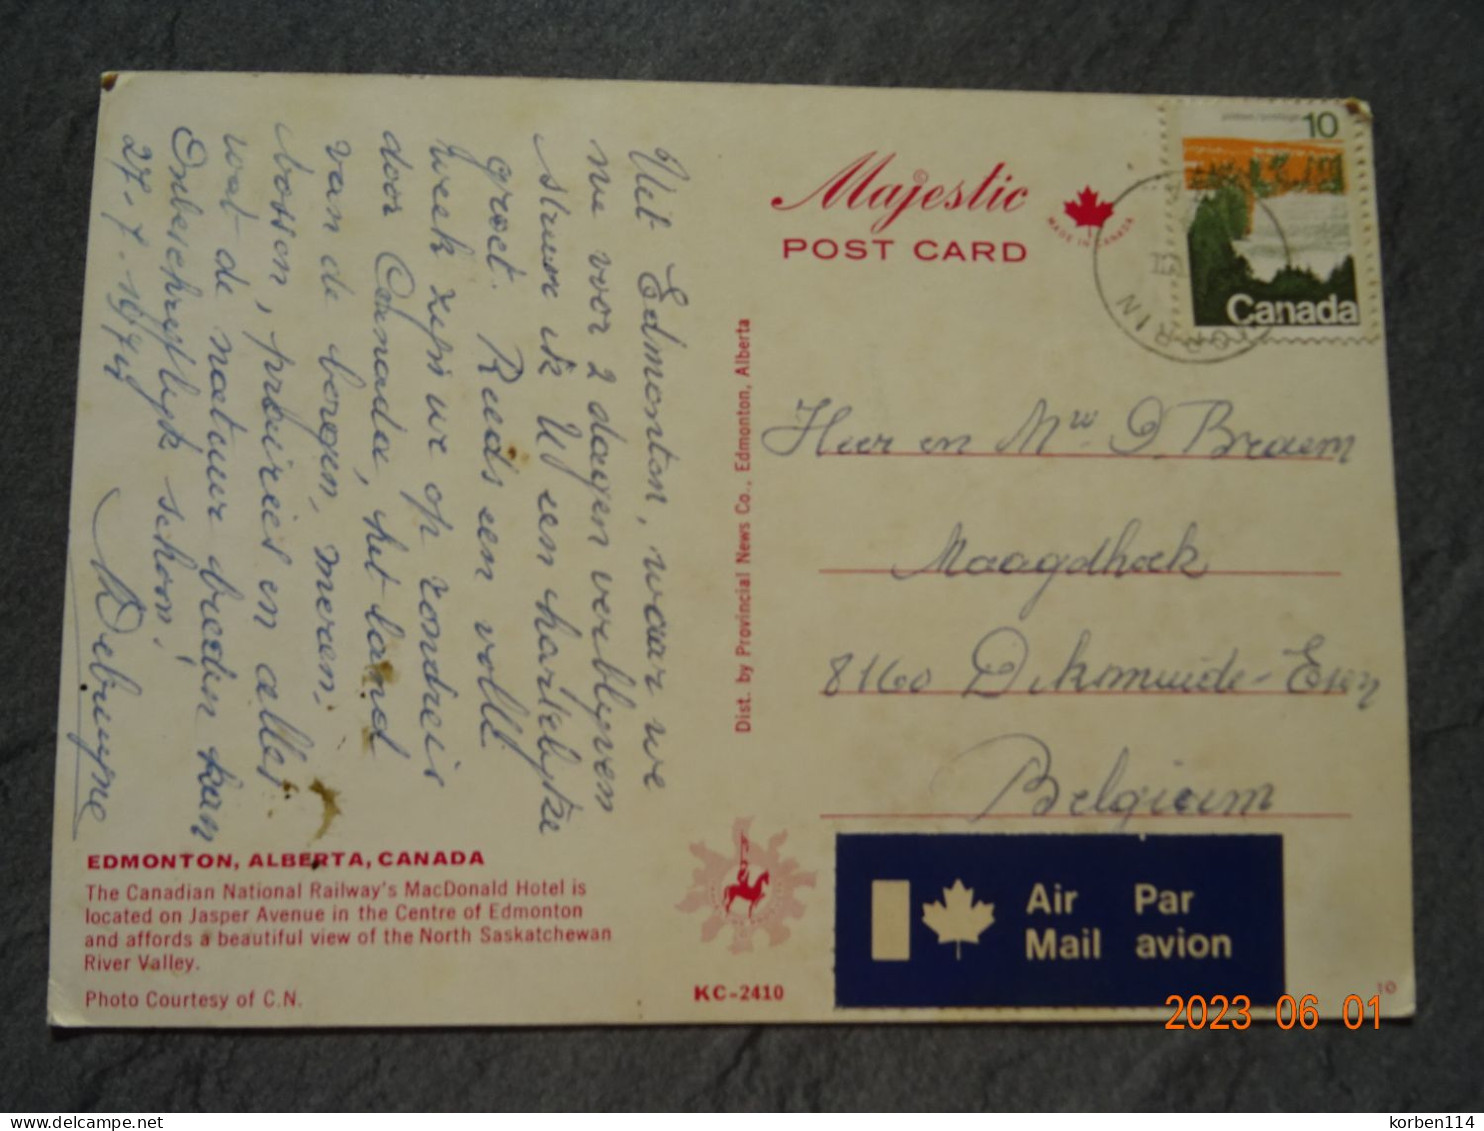 Majestic
POST CARD
MADE IN CANADA
postes/postage
10
Canada
Uit Edmonton, waar we
nu voor 2 dagen verblijven
sturen ik U een hartelijke
groet. Reeds een volle
week zijn we op rondreis
door Canada, het land
van de bergen, meren,
bossen, prairies en alles
wat de natuur bieden kan
Onbeschrijflijk schoon!
27-7-1974
Debruyne
Heer en Mw D. Braem
Maagdhoek
8160 Diksmuide-Esen
Belgium
Dist. by Provincial News Co., Edmonton, Alberta
EDMONTON, ALBERTA, CANADA
The Canadian National Railway's MacDonald Hotel is
located on Jasper Avenue in the Centre of Edmonton
and affords a beautiful view of the North Saskatchewan
River Valley.
Photo Courtesy of C.N.
KC-2410
Air Mail
Par avion
10
2023 06 01
delcampe.net
korben114